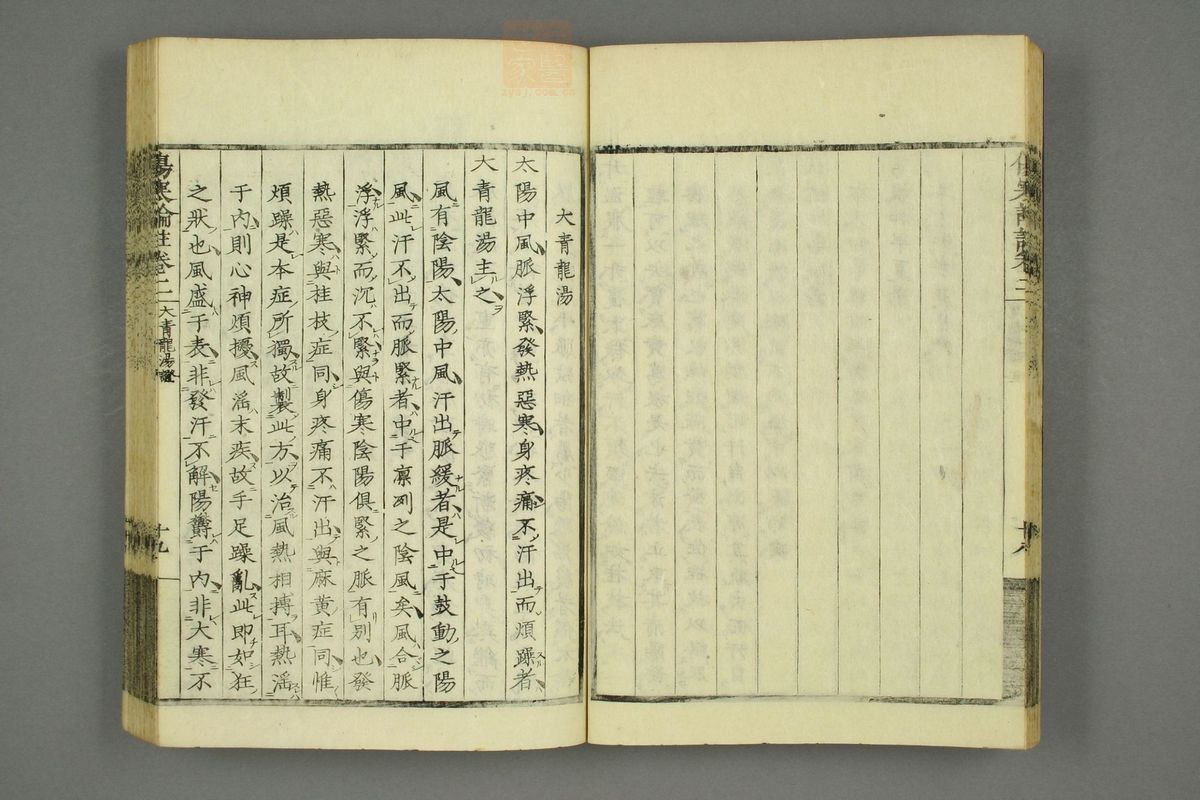 大青龍湯
太陽中風脈浮緊發熱惡寒身疼痛不汗出而煩躁者
大青龍湯主之
風有陰陽太陽中風汗出脈緩者是中于鼓動之陽
風此汗不出而脈緊者中于凛冽之陰風矣風合脈
浮浮緊而沉不緊與傷寒陰陽俱緊之脈有別也發
熱惡寒與桂枝症同身疼痛不汗出與麻黄症同惟
煩躁是本症所獨故製此方以治風熱相搏耳熱淫
于内則心神煩擾風淫末疾故手足躁亂此即如狂
之狀也風盛于表非發汗不解陽鬱于内非大寒不
傷寒論註卷二
大青龍湯證
十九
十八